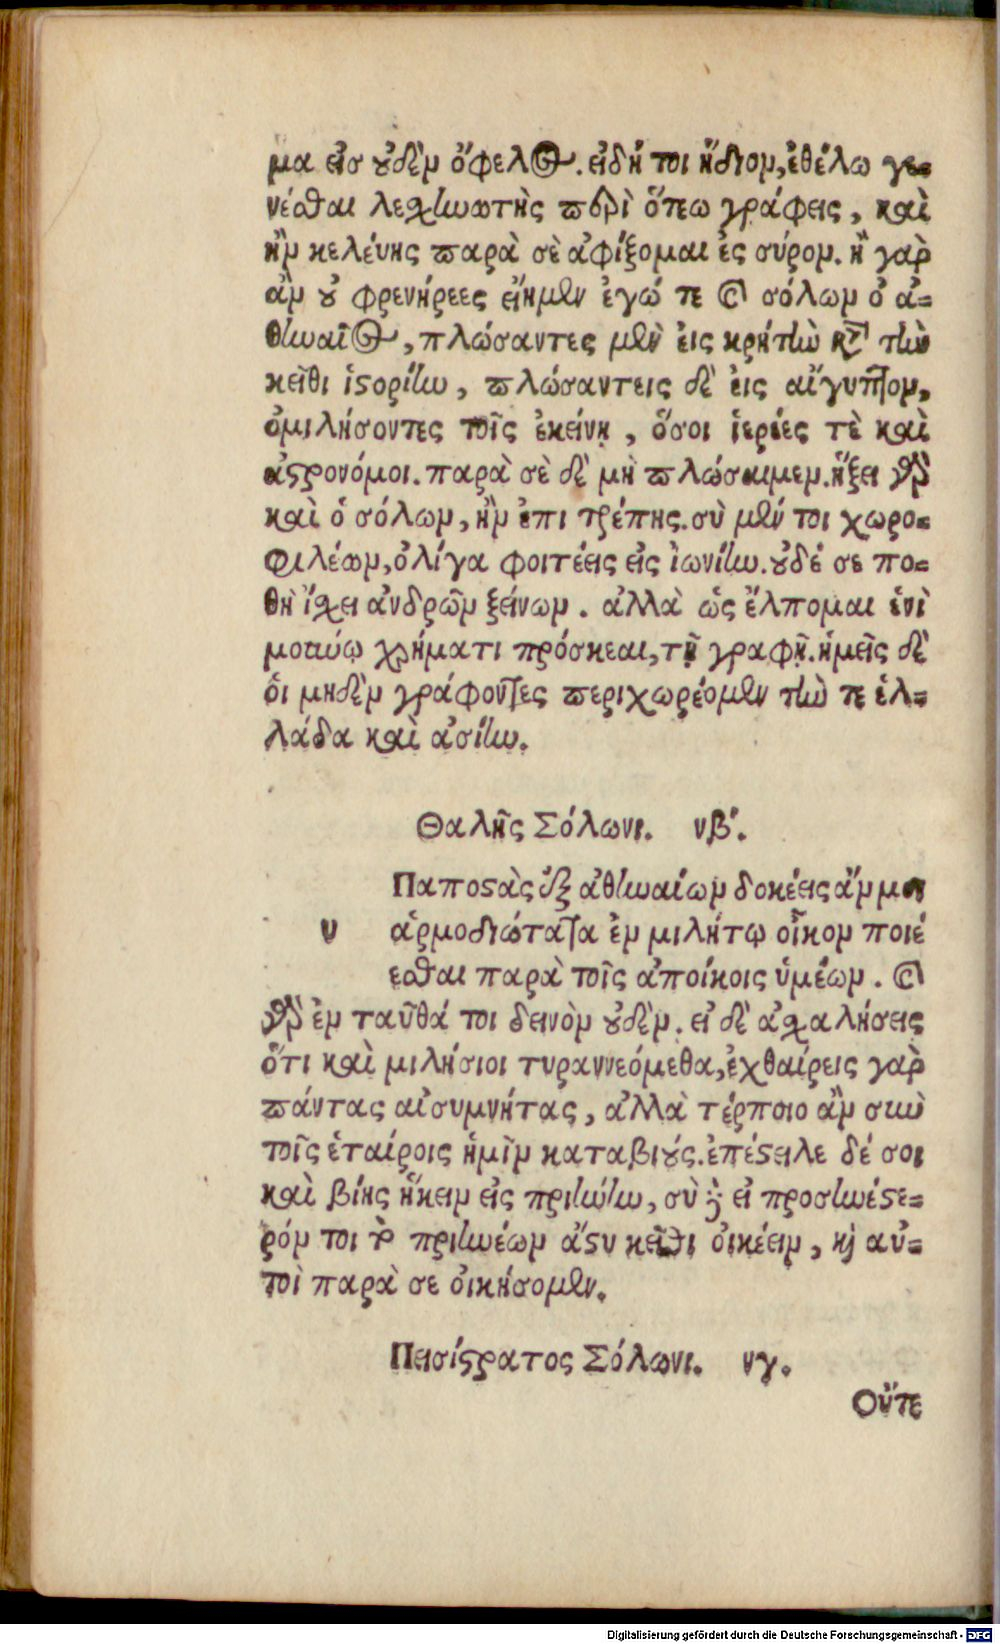 μα εἰσ οὐδὲν ὄφελος. εἰ δή τοι ἥδιον, ἐθέλω γε-
νέσθαι λεσχηνωτὴς περὶ ὅτεω γράφεις, καὶ
ἢν κελέυης παρὰ σὲ ἀφίξομαι ἐς σύρον. ἢ γὰρ
ἂν οὐ φρενήρεες εἴημεν ἐγώ τε καὶ σόλων ὁ ἀ-
θηναῖος, πλώσαντες μὲν εἰς κρήτην κατὰ τὴν
κεῖθι ἱστορίην, πλώσαντεις δὲ εἰς αἴγυπτον,
ὁμιλήσοντες τοῖς ἐκείνῃ, ὅσοι ἱερέες τὲ καὶ
ἀστρονόμοι. παρὰ σὲ δὲ μὴ πλώσαιμεν. ἥξει γὰρ
καὶ ὁ σόλων, ἢν ἐπι τρέπης. σὺ μέν τοι χωρο-
φιλέων, ὀλίγα φοιτέεις εἰς ἰωνίην. οὐδέ σε πο-
θὴ ἴσχει ἀνδρῶν ξείνων. ἀλλὰ ὡς ἔλπομαι ἑνὶ
μούνῳ χρήματι πρόσκεαι, τῇ γραφῇ. ἡμεῖς δὲ
ὁι μηδὲν γράφοντες περιχωρέομεν τήν τε ἑλ-
λάδα καὶ ἀσίην.
Θαλῆς Σόλωνι. νβʹ.
Παποστὰς ἐξ ἀθηναίων δοκέεις ἄν μοι
υ ἁρμοδιώτατα ἐν μιλήτῳ οἶκον ποιέ
εσθαι παρὰ τοῖς ἀποίκοις ὑμέων. καὶ
γὰρ ἐν ταῦθά τοι δεινὸν οὐδὲν. εἰ δὲ ἀσχαλήσεις
ὅτι καὶ μιλήσιοι τυραννεόμεθα, ἐχθαίρεις γὰρ
πάντας αἰσυμνήτας, ἀλλὰ τέρποιο ἂν σὺν
τοῖς ἑταίροις ἡμῖν καταβιούς. ἐπέστειλε δέ σοι
καὶ βίης ἥκειν εἰς πριήνην, σὺ δὲ εἰ προσηνέστε-
ρόν τοι τὸ πριηνέων ἄστυ κεῖθι οἰκέειν, καὶ αὐ-
τοὶ παρὰ σε οἰκήσομεν.
Πεισίστρατος Σόλωνι. νγ.
Οὔτε
Digitalisierung gefördert durch die Deutsche Forschungsgemeinschaft - DFG